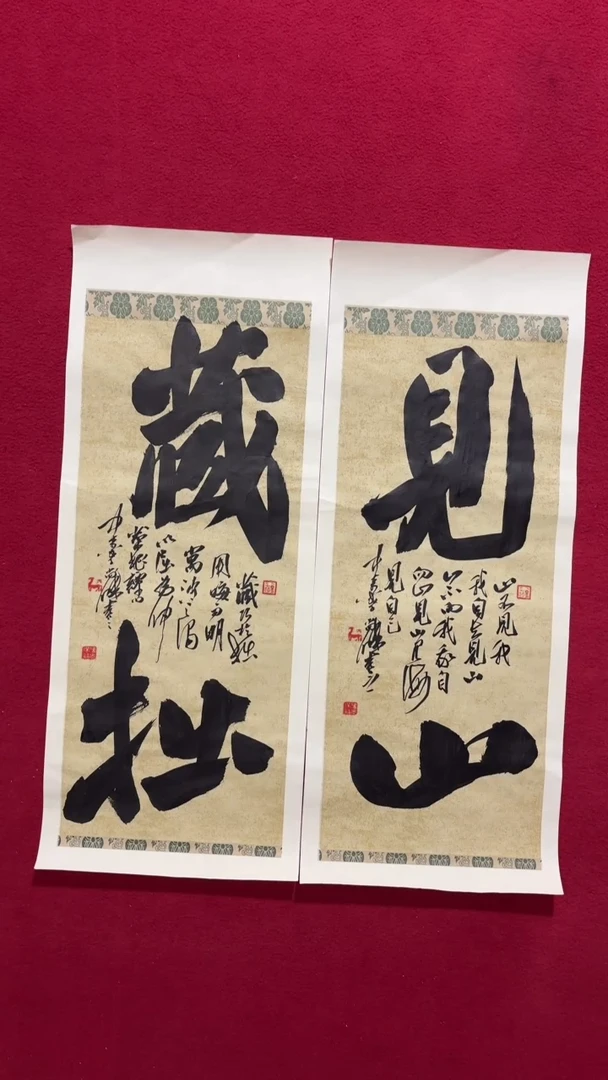 見
山
山不見我
我自去見山
山不向我我自
向山見山見海
見自己
藏
拙
藏巧於拙
用晦而明
寓清於濁
以屈為伸